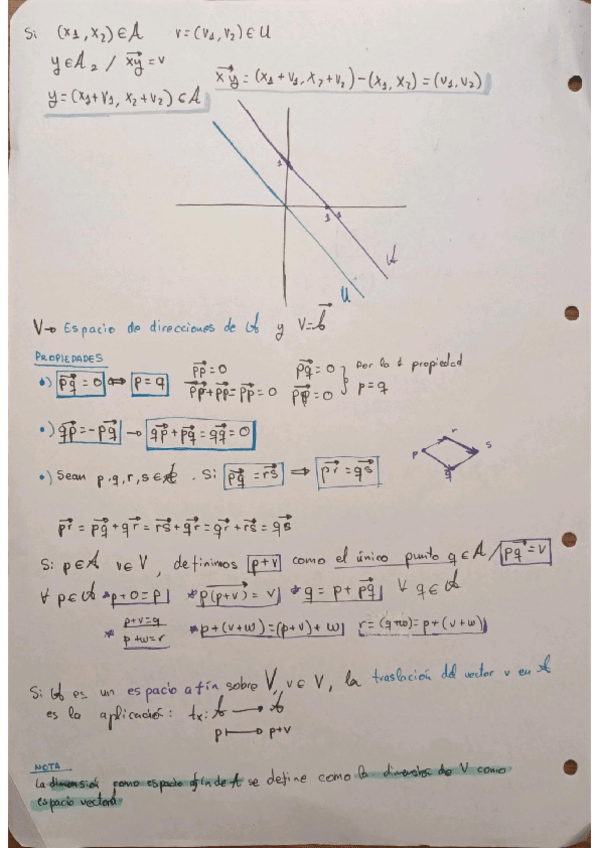 Si (x1, x2) ∈ A v=(v1, v2) ∈ U
y ∈ A2 / xy⃗ = v
xy⃗ = (x1+v1, x2+v2)-(x1, x2) = (v1, v2)
y=(x1+v1, x2+v2) ∈ A
1
1
A
U
V→ Espacio de direcciones de A y V=A⃗
PROPIEDADES
•) pq⃗ = 0 ⇔ p = q pp⃗ = 0 pq⃗ = 0 } por la 1 propiedad
pp⃗+pp⃗=pp⃗=0 pp⃗=0 } p=q
•) qp⃗=-pq⃗ → qp⃗+pq⃗=qq⃗=0
•) Sean p,q,r,s ∈ A. Si pq⃗ = rs⃗ ⇒ pr⃗ = qs⃗
p r s q
pr⃗ = pq⃗+qr⃗ = rs⃗+qr⃗ = qr⃗+rs⃗ = qs⃗
Si p∈A v∈V, definimos p+v como el único punto q∈A / pq⃗ = v
∀ p∈A *p+0=p *p(p+v)⃗ = v *q = p + pq⃗ ∀ q∈A
* p+v=q
p+w=r
*p+(v+w)=(p+v)+w r=(q+w)=p+(v+w)
Si A es un espacio afín sobre V, v∈V, la traslación del vector v en A
es la aplicación: tx: A → A
p ↦ p+v
NOTA
La dimensión como espacio afín de A se define como la dimensión de V como
espacio vectorial